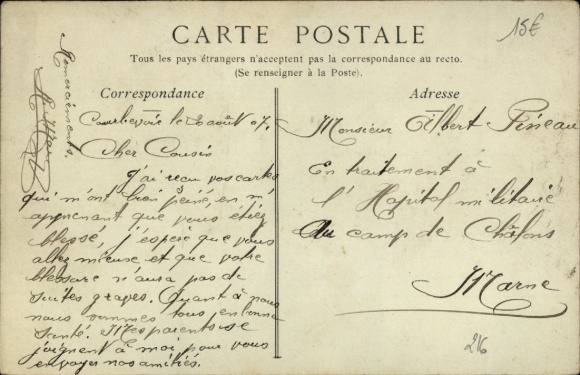 15€
CARTE POSTALE
Tous les pays étrangers n'acceptent pas la correspondance au recto.
(Se renseigner à la Poste).
Correspondance
Courbevoie le 20 août 07.
Cher Cousin
J'ai reçu vos cartes
qui m'ont bien peiné, en m'
apprenant que vous étiez
blessé, j'espère que vous
allez mieuse et que votre
blessure n'aura pas de
suites graves. Quant à nous
nous sommes tous en bonne
santé. Mes parents se
joignent à moi pour vous
envoyer nos amitiés.
Remerciements.
Adresse
Monsieur Albert Pineau
En traitement à
l'Hopital militaire
Au camp de Châlons
Marne
216